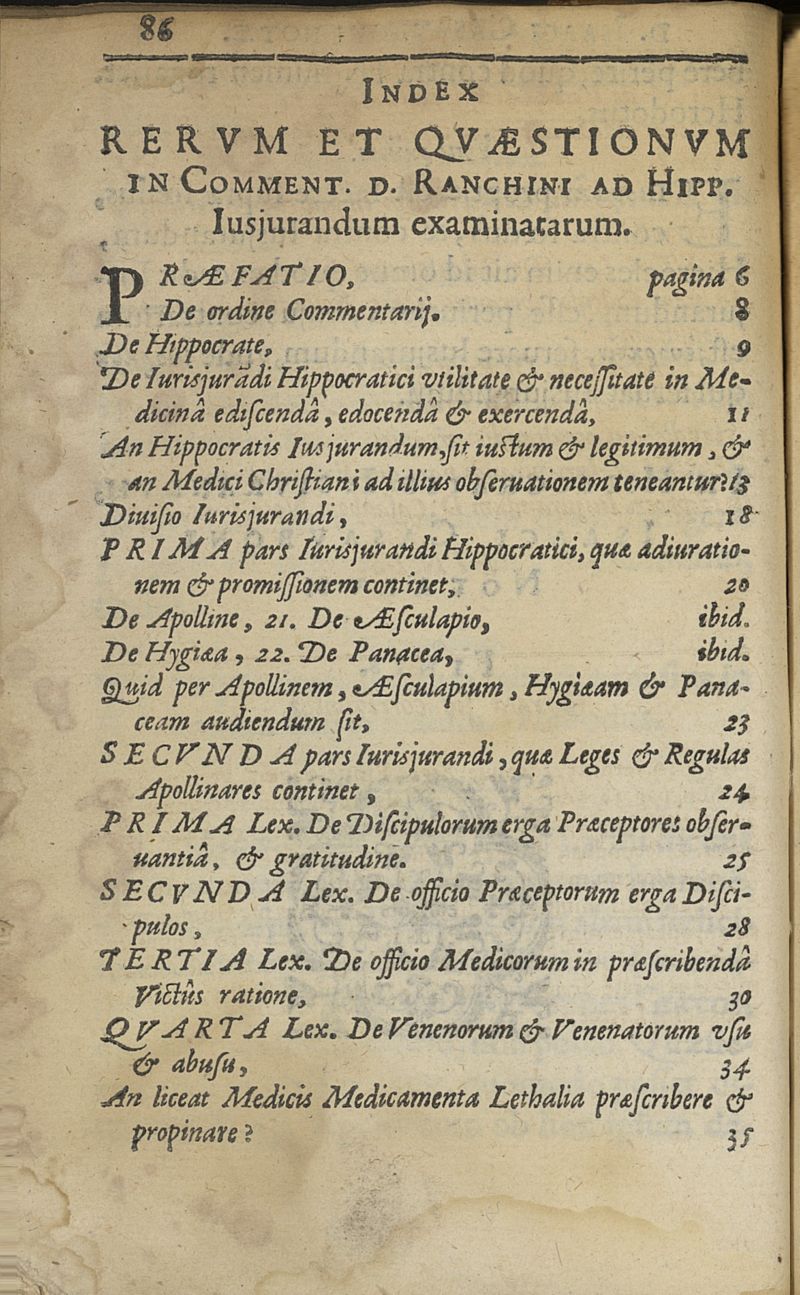 86
INDEX
RERVM ET QVÆSTIONVM
IN COMMENT. D. RANCHINI AD HIPP.
Iusjurandum examinatarum.
PRÆFATIO, pagina 6
De ordine Commentarij. 8
De Hippocrate, 9
De Iurisjurãdi Hippocratici vtilitate & neceſſitate in Me-
dicinâ ediſcendâ, edocendâ & exercendâ, 11
An Hippocratis Iusjurandum, ſit iuſtum & legitimum, &
an Medici Chriſtiani ad illius obſeruationem teneantur? 13
Diuiſio Iurisjurandi, 18
PRIMA pars Iurisjurandi Hippocratici, quæ adiuratio-
nem & promiſſionem continet, 20
De Apolline, 21. De Æſculapio, ibid.
De Hygiæa, 22. De Panacea, ibid.
Quid per Apollinem, Æſculapium, Hygiæam & Pana-
ceam audiendum ſit, 23
SECVNDA pars Iurisjurandi, quæ Leges & Regulas
Apollinares continet, 24
PRIMA Lex. De Diſcipulorum erga Præceptores obſer-
uantiâ, & gratitudine. 25
SECVNDA Lex. De officio Præceptorum erga Diſci-
pulos, 28
TERTIA Lex. De officio Medicorum in præſcribendâ
Victûs ratione, 30
QVARTA Lex. De Venenorum & Venenatorum vſu
& abuſu, 34
An liceat Medicis Medicamenta Lethalia præſcribere &
propinare? 35